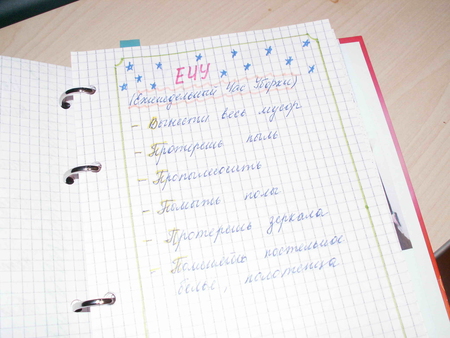 ЕЧУ
(Еженедельный Час Уборки)
- Вынести весь мусор
- Протереть пыль
- Пропылесосить
- Помыть полы
- Протереть зеркала
- Поменять постельное
белье, полотенца